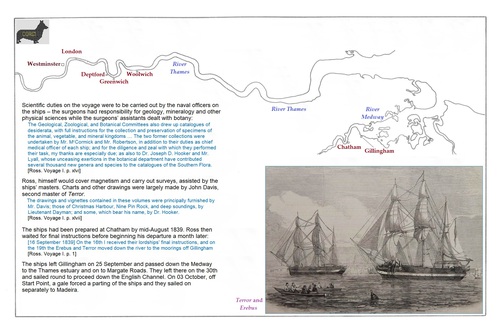 London
Westminster
Deptford
Woolwich
Greenwich
River
Thames
River Thames
River
Medway
Chatham
Gillingham
Scientific duties on the voyage were to be carried out by the naval officers on
the ships – the surgeons had responsibility for geology, mineralogy and other
physical sciences while the surgeons' assistants dealt with botany:
The Geological, Zoological, and Botanical Committees also drew up catalogues of
desiderata, with full instructions for the collection and preservation of specimens of
the animal, vegetable, and mineral kingdoms . . . The two former collections were
undertaken by Mr. M'Cormick and Mr. Robertson, in addition to their duties as chief
medical officer of each ship; and for the diligence and zeal with which they performed
their task, my thanks are especially due; as also to Dr. Joseph D. Hooker and Mr.
Lyall, whose unceasing exertions in the botanical department have contributed
several thousand new genera and species to the catalogues of the Southern Flora.
[Ross. Voyage I. p. xlvi]
Ross, himself would cover magnetism and carry out surveys, assisted by the
ships' masters. Charts and other drawings were largely made by John Davis,
second master of Terror:
The drawings and vignettes contained in these volumes were principally furnished by
Mr. Davis; those of Christmas Harbour, Nine Pin Rock, and deep soundings, by
Lieutenant Dayman; and some, which bear his name, by Dr. Hooker.
[Ross. Voyage I. p. xlvii]
The ships had been prepared at Chatham by mid-August 1839. Ross then
waited for final instructions before beginning his departure a month later:
[16 September 1839] On the 16th I received their lordships' final instructions, and on
the 19th the Erebus and Terror moved down the river to the moorings off Gillingham
[Ross. Voyage I. p. 1]
The ships left Gillingham on 25 September and passed down the Medway
to the Thames estuary and on to Margate Roads. They left there on the 30th
and sailed round to proceed down the English Channel. On 03 October, off
Start Point, a gale forced a parting of the ships and they sailed on
separately to Madeira.
Terror and
Erebus